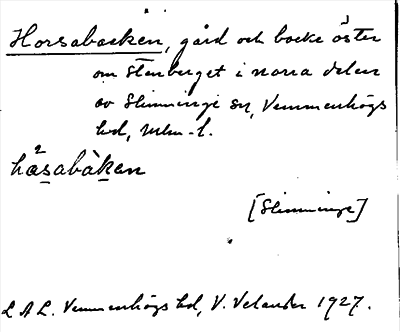 Horsabacken, gård och backe öster
om Stenberget i norra delen
av Slimminge sn, Vemmenhögs
hd, Mlm-l.
hæsabàkan
[Slimminge]
L A L. Vemmenhögs hd, V. Velander 1927.